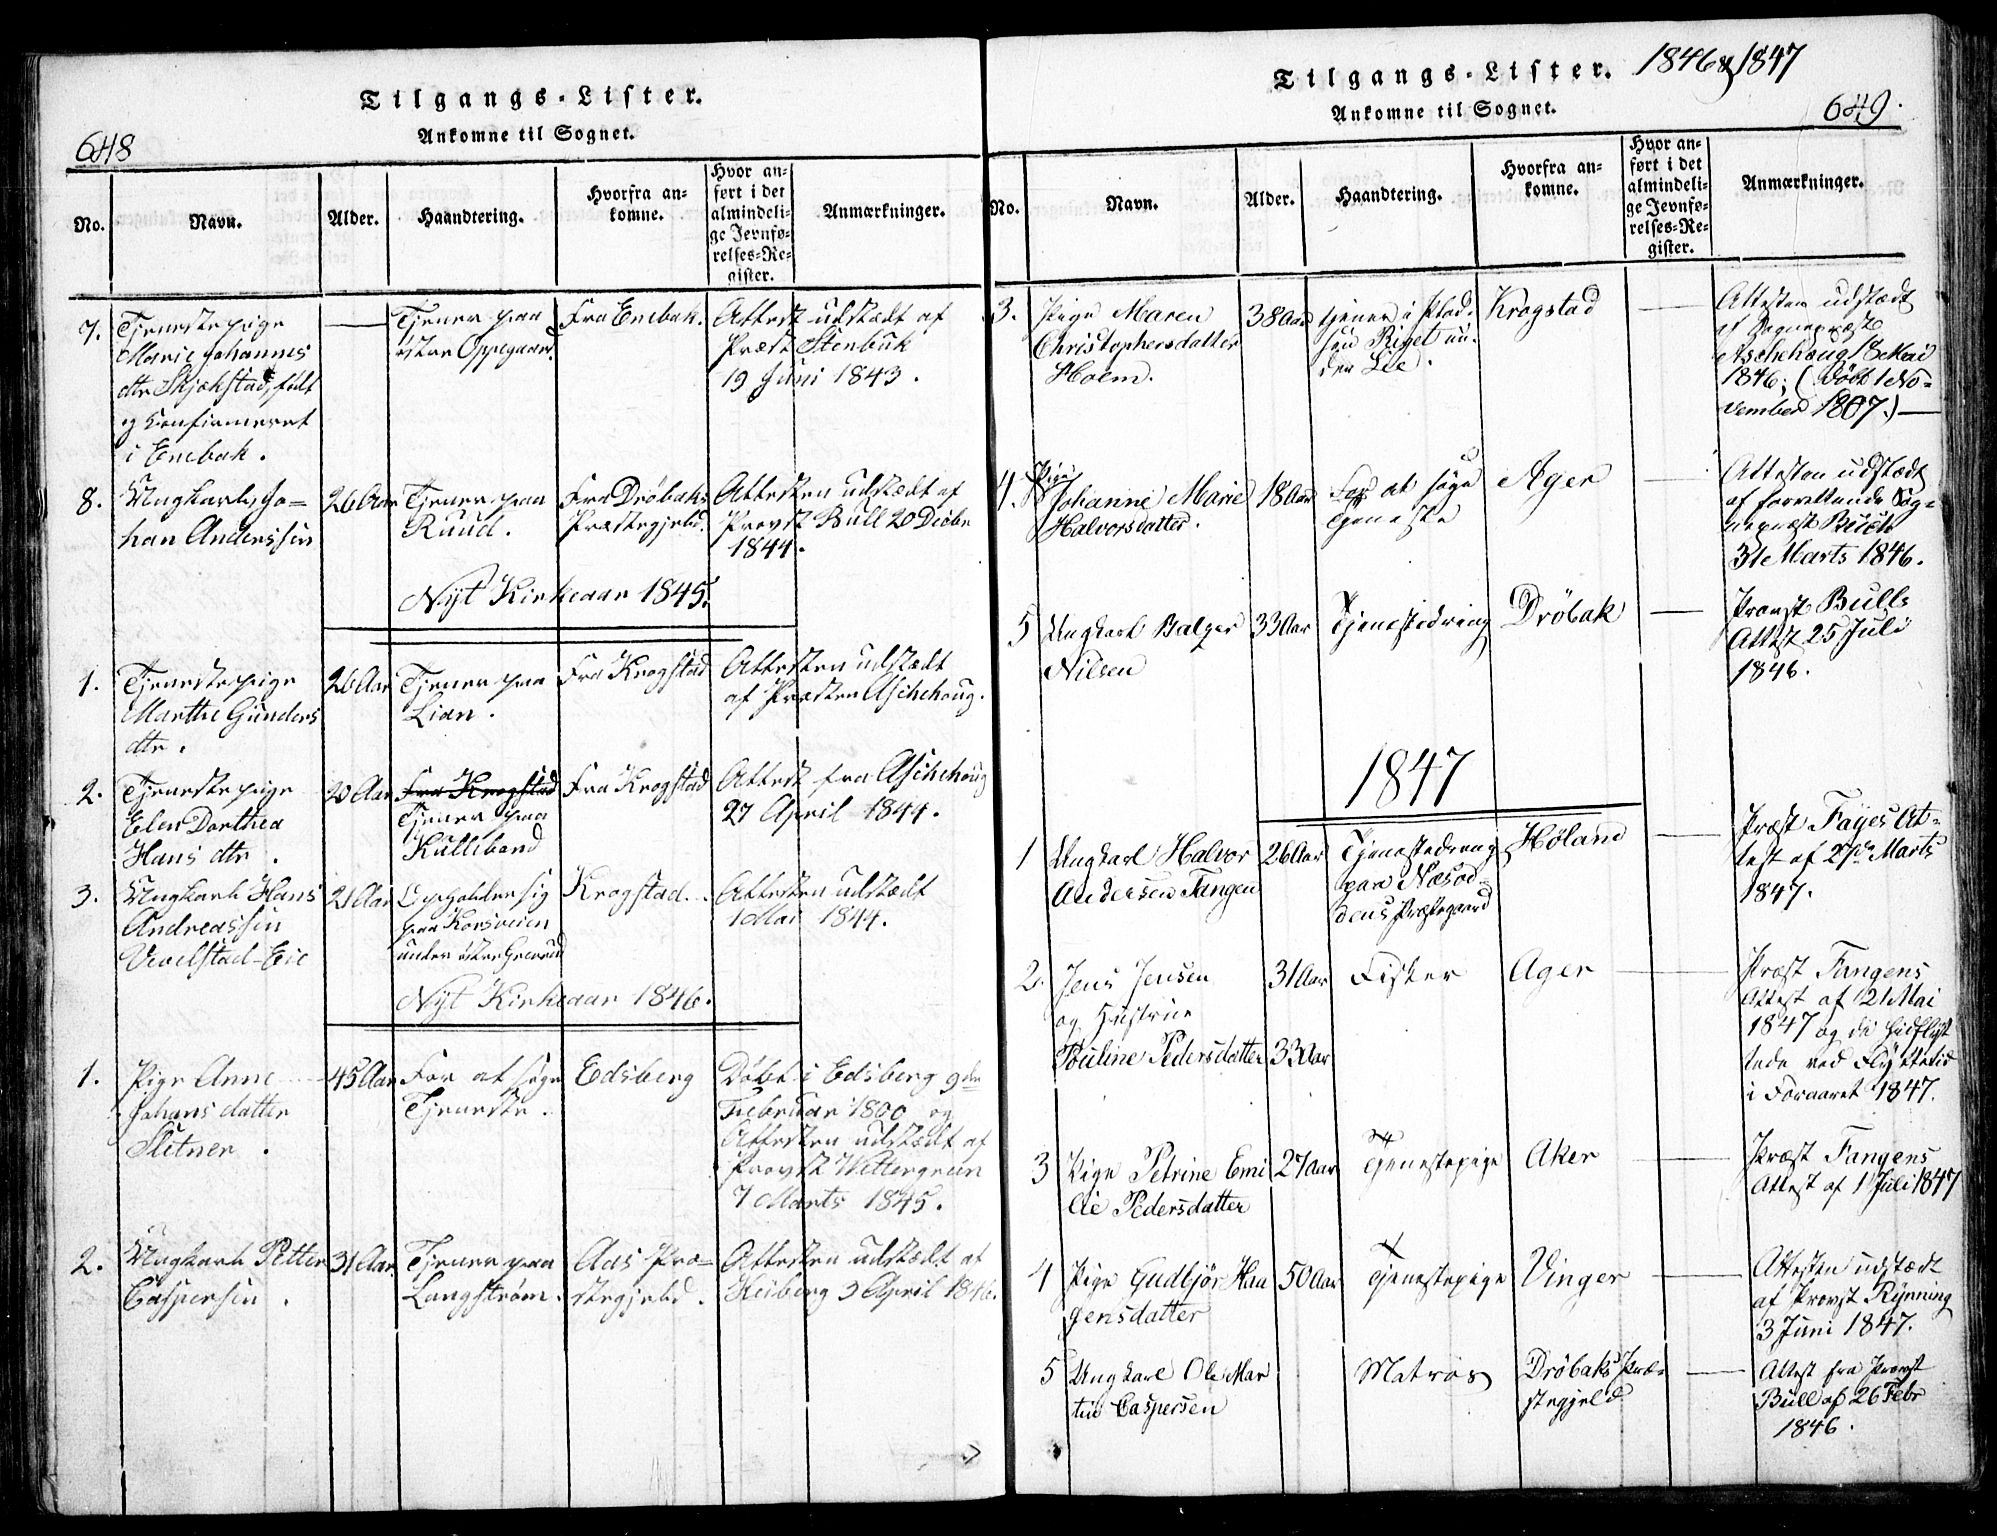 Tilgangs-Lister.
648
Ankomne til Sognet.
No.
Navn.
Alder.
Haandtering.
Hvorfra an-
komne.
Hvor an-
ført i det
almindeli-
ge Jevnfø-
relses-Re-
gister.
Anmærkninger.
7.
Tjenestepige
Marie Johannes
dtr Skjækstad, født
og Confirmeret
i Enebak.
Tjener paa
østre Oppegaard.
Fra Enebak.
Attest udstædt af
Præst Stenbuk
19 Juni 1843.
8.
Ungkarl Jo-
han Anderssen
26 Aar
Tjener paa
Ruud.
Fra Drøbaks
Præstegjeld.
Attesten udstædt af
Provst Bull 20 Dcbr
1844.
Nyt Kirkeaar 1845.
1.
Tjenestepige
Marthe Gunders
dtr.
26 Aar
Tjener paa
Lian.
Fra Krogstad
Attesten udstædt
af Præsten Aschehoug.
2.
Tjenestepige
Elen Dorthea
Hans dtr.
20 Aar
Fra Krogstad
Tjener paa
Kullebond
Fra Krogstad
Attest fra Aschehoug
27 April 1844.
3.
Ungkarl Hans
Andreassen
Vevelstad-Eie
21 Aar
Opholder sig
paa Korsveien
under østre Greverud
Krogstad.
Attesten udstædt
1 Mai 1844.
Nyt Kirkeaar 1846.
1.
Pige Anne
Johans datter
Slitner.
45 Aar
For at søge
Tjeneste.
Edsberg
Døbt i Edsberg 9de
Februar 1800 og
Attesten udstædt af
Provst Wettergreen
7 Marts 1845.
2.
Ungkarl Petter
Caspersen.
31 Aar.
Tjener paa
Langstrøm.
Aas Præ-
stegjeld.
Attesten udstædt af
Heiberg 3 April 1846.
Tilgangs-Lister. 1846 & 1847
649.
Ankomne til Sognet.
No.
Navn.
Alder.
Haandtering.
Hvorfra an-
komne.
Hvor an-
ført i det
almindeli-
ge Jevnfø-
relses-Re-
gister.
Anmærkninger.
3.
Pige Maren
Christophersdatter
Holm.
38 Aar
tjener i Plad-
sen Riget un-
der Lie.
Krogstad
Attesten udstædt
af Sognepræst
Aschehoug 18 Mai
1846; (døbt 1 No-
vember 1807.)
4.
Pige
Johanne Marie
Halvorsdatter.
18 Aar
For at søge
Tjeneste
Ager
Attesten udstædt
af forrettende Sog-
nepræst Buch
31 Marts 1846.
5
Ungkarl Balzer
Nilsen
33 Aar
Tjenestedreng
Drøbak
Provst Bulls
Attest 25 Juli
1846.
1847
1
Ungkarl Halvor
Andersen Tangen
26 Aar
Tjenestedreng
paa Næsod-
dens Præstegaard
Høland
Præst Fayes At-
test af 27de Marts
1847.
2.
Jens Jensen
og Hustrue
Pouline Pedersdatter
31 Aar
33 Aar
Fisker
Ager
Præst Fangens
Attest af 21 Mai
1847 og de hidflyt
tede ved Flyttetid
i Foraaret 1847.
3
Pige Petrine Emi
lie Pedersdatter
27 Aar
Tjenestepige
Aker
Præst Fangens
Attest af 1 Juli 1847
4
Pige Gudbjør Haa
gensdatter
50 Aar
Tjenestepige
Vinger
Attesten udstædt
af Provst Rynning
3 Juni 1847.
5
Ungkarl Ole Mar
tin Caspersen
Matros
Drøbaks Præ-
stegjeld
Attest fra Provst
Bull af 26 Febr
1846.